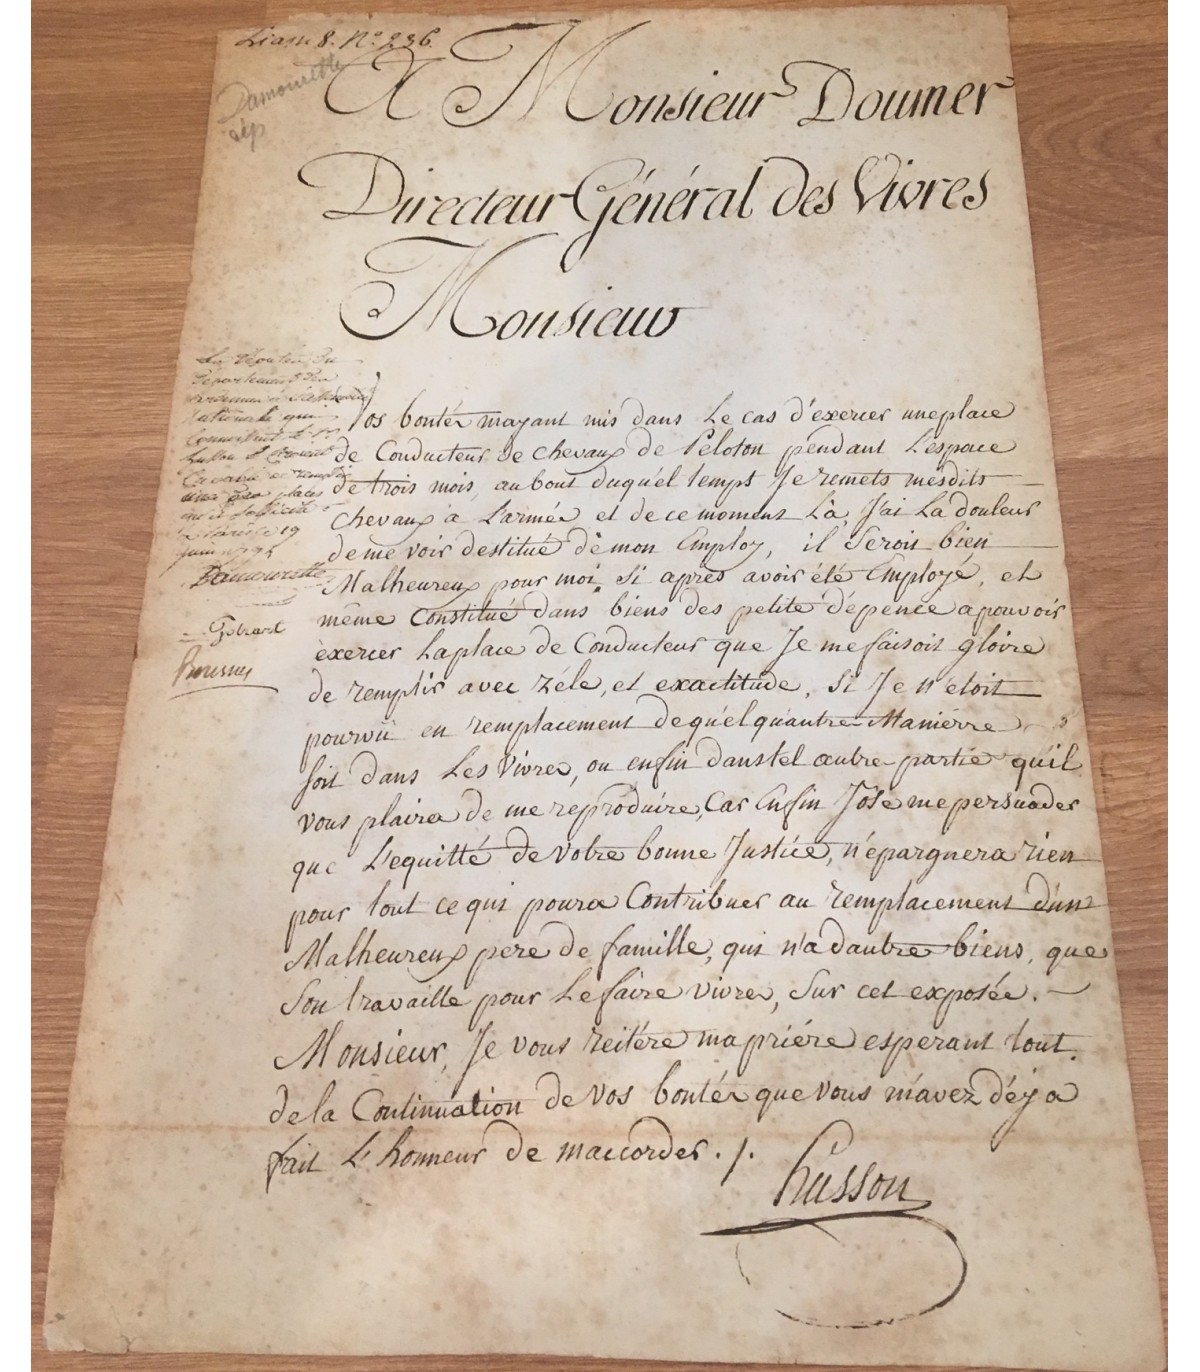 Liasse 8. N° 236.
Damourette
dép
A Monsieur Doumer
Directeur Général des Vivres
Monsieur
Vos bontés mayant mis dans le cas d'exercer une place
de Conducteur de chevaux de Peloton pendant l'espace
de trois mois, au bout duquél temps Je remets mesdits
chevaux à l'armée et de ce moment là, J'ai la douleur
de me voir destitué de mon Employ, il serois bien
Malheureux pour moi si après avoir été Employé, et
même Constitué dans biens des petite dépence a pouvoir
éxercer la place de Conducteur que Je me faisois gloire
de remplir avec zéle, et exactitude, si Je n'etoit
pourvû en remplacement de quélqu'autre Maniérre
soit dans les vivres, ou enfin dans tel autre partie qu'il
vous plaira de me reproduire, Car Enfin J'ose me persuader
que L'equitté de votre bonne Justice, n'épargnera rien
pour tout ce qui poura Contribuer au remplacement d'un
Malheureux pere de famille, qui n'a dautre biens, que
son travaille pour le faire vivre, sur cet exposée.
Monsieur, Je vous reitére ma priére esperant tout
de la Continuation de vos bontés que vous m'avez déja
fait l'honneur de maccorder ./.
husson
Les députés du
département des
Ardennes à l'assemblée
Nationale qui
Connoissent le Sr
husson
capable de remplir
une des places
qu'il sollicite
à Paris le 19
juin 1792
Damourette
Golzart